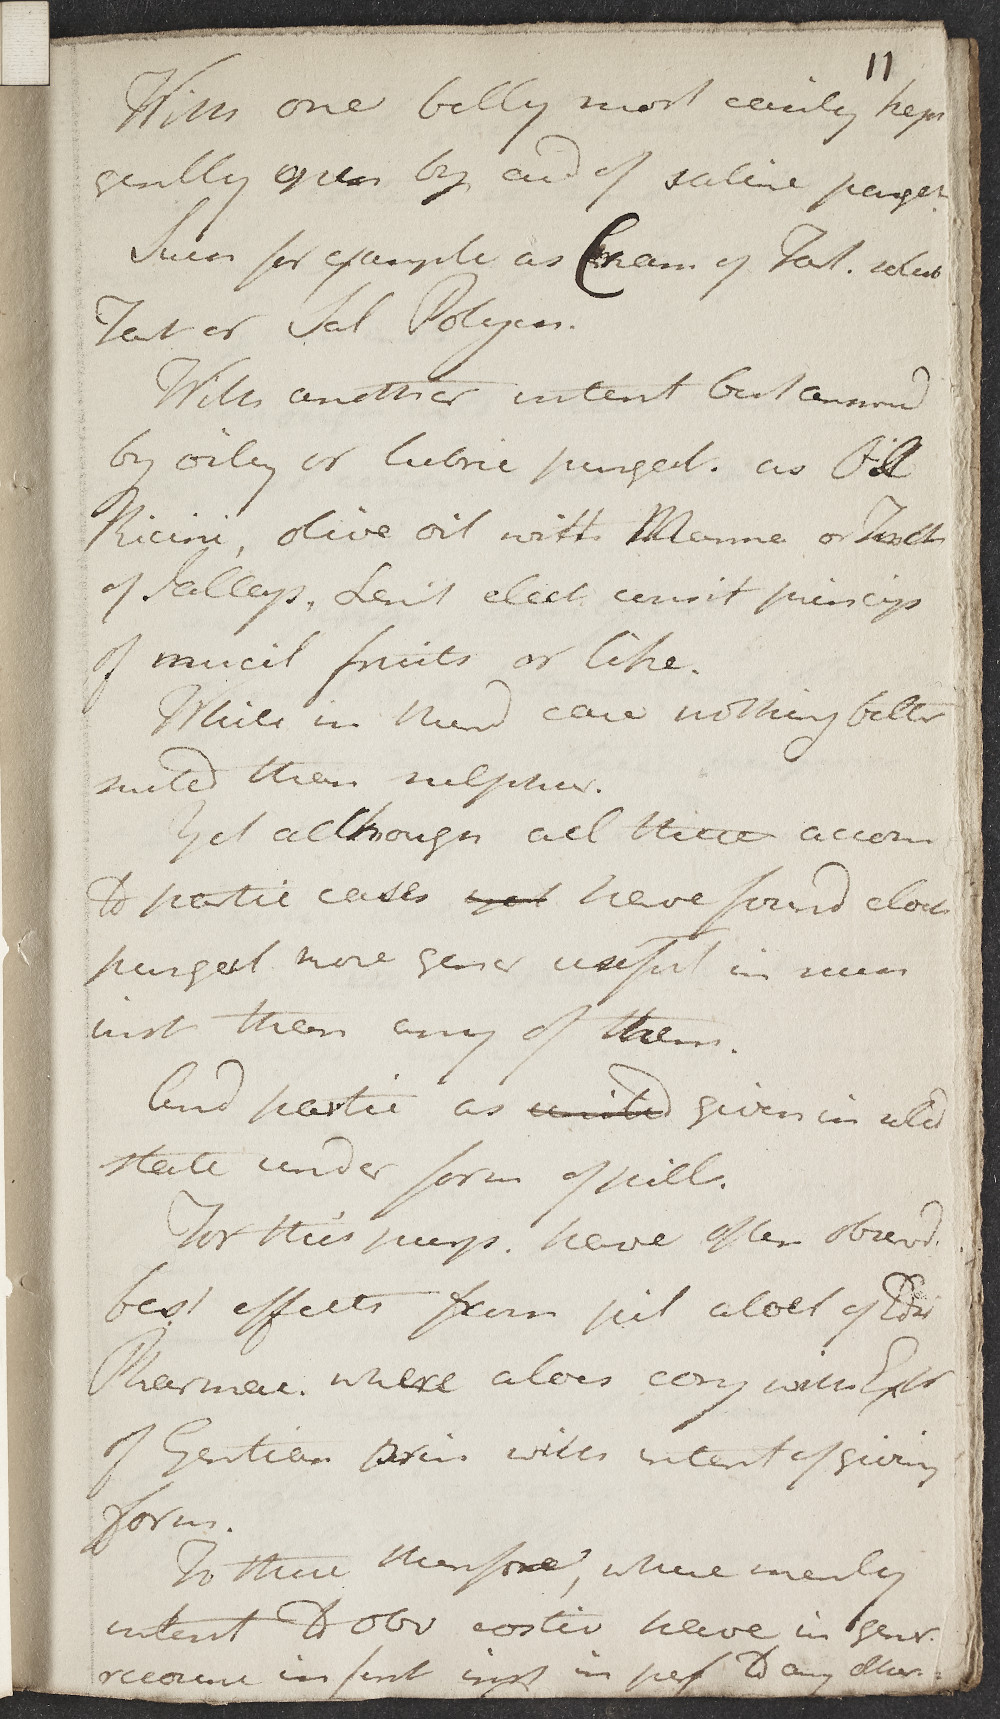 11
With one belly most easily kept
gently open by aid of saline purget.
Such for example as Cream of Tart. solub
Tart or Sal Polych.
With another intent best answrd
by oiley or lubric purgat. as Ol
Ricini, olive oil with Manna or Tinct
of Jallap, Lenit elect consist princip
of mucil fruits or like.
While in third case nothing better
suited than sulphur.
Yet although all these accom
to partic cases yet have found aloet
purgat more gener useful in such
inst than any of them.
And partic as united given in solid
state under form of pill.
For this purp. have often observd.
best effects from pil aloet of Edin
Pharmac. where aloes conj with Extr
of Gentian prin with intent of giving
form.
To these therefore, where merely
intent to obv costiv have in gener.
recourse in first inst in pref to any other